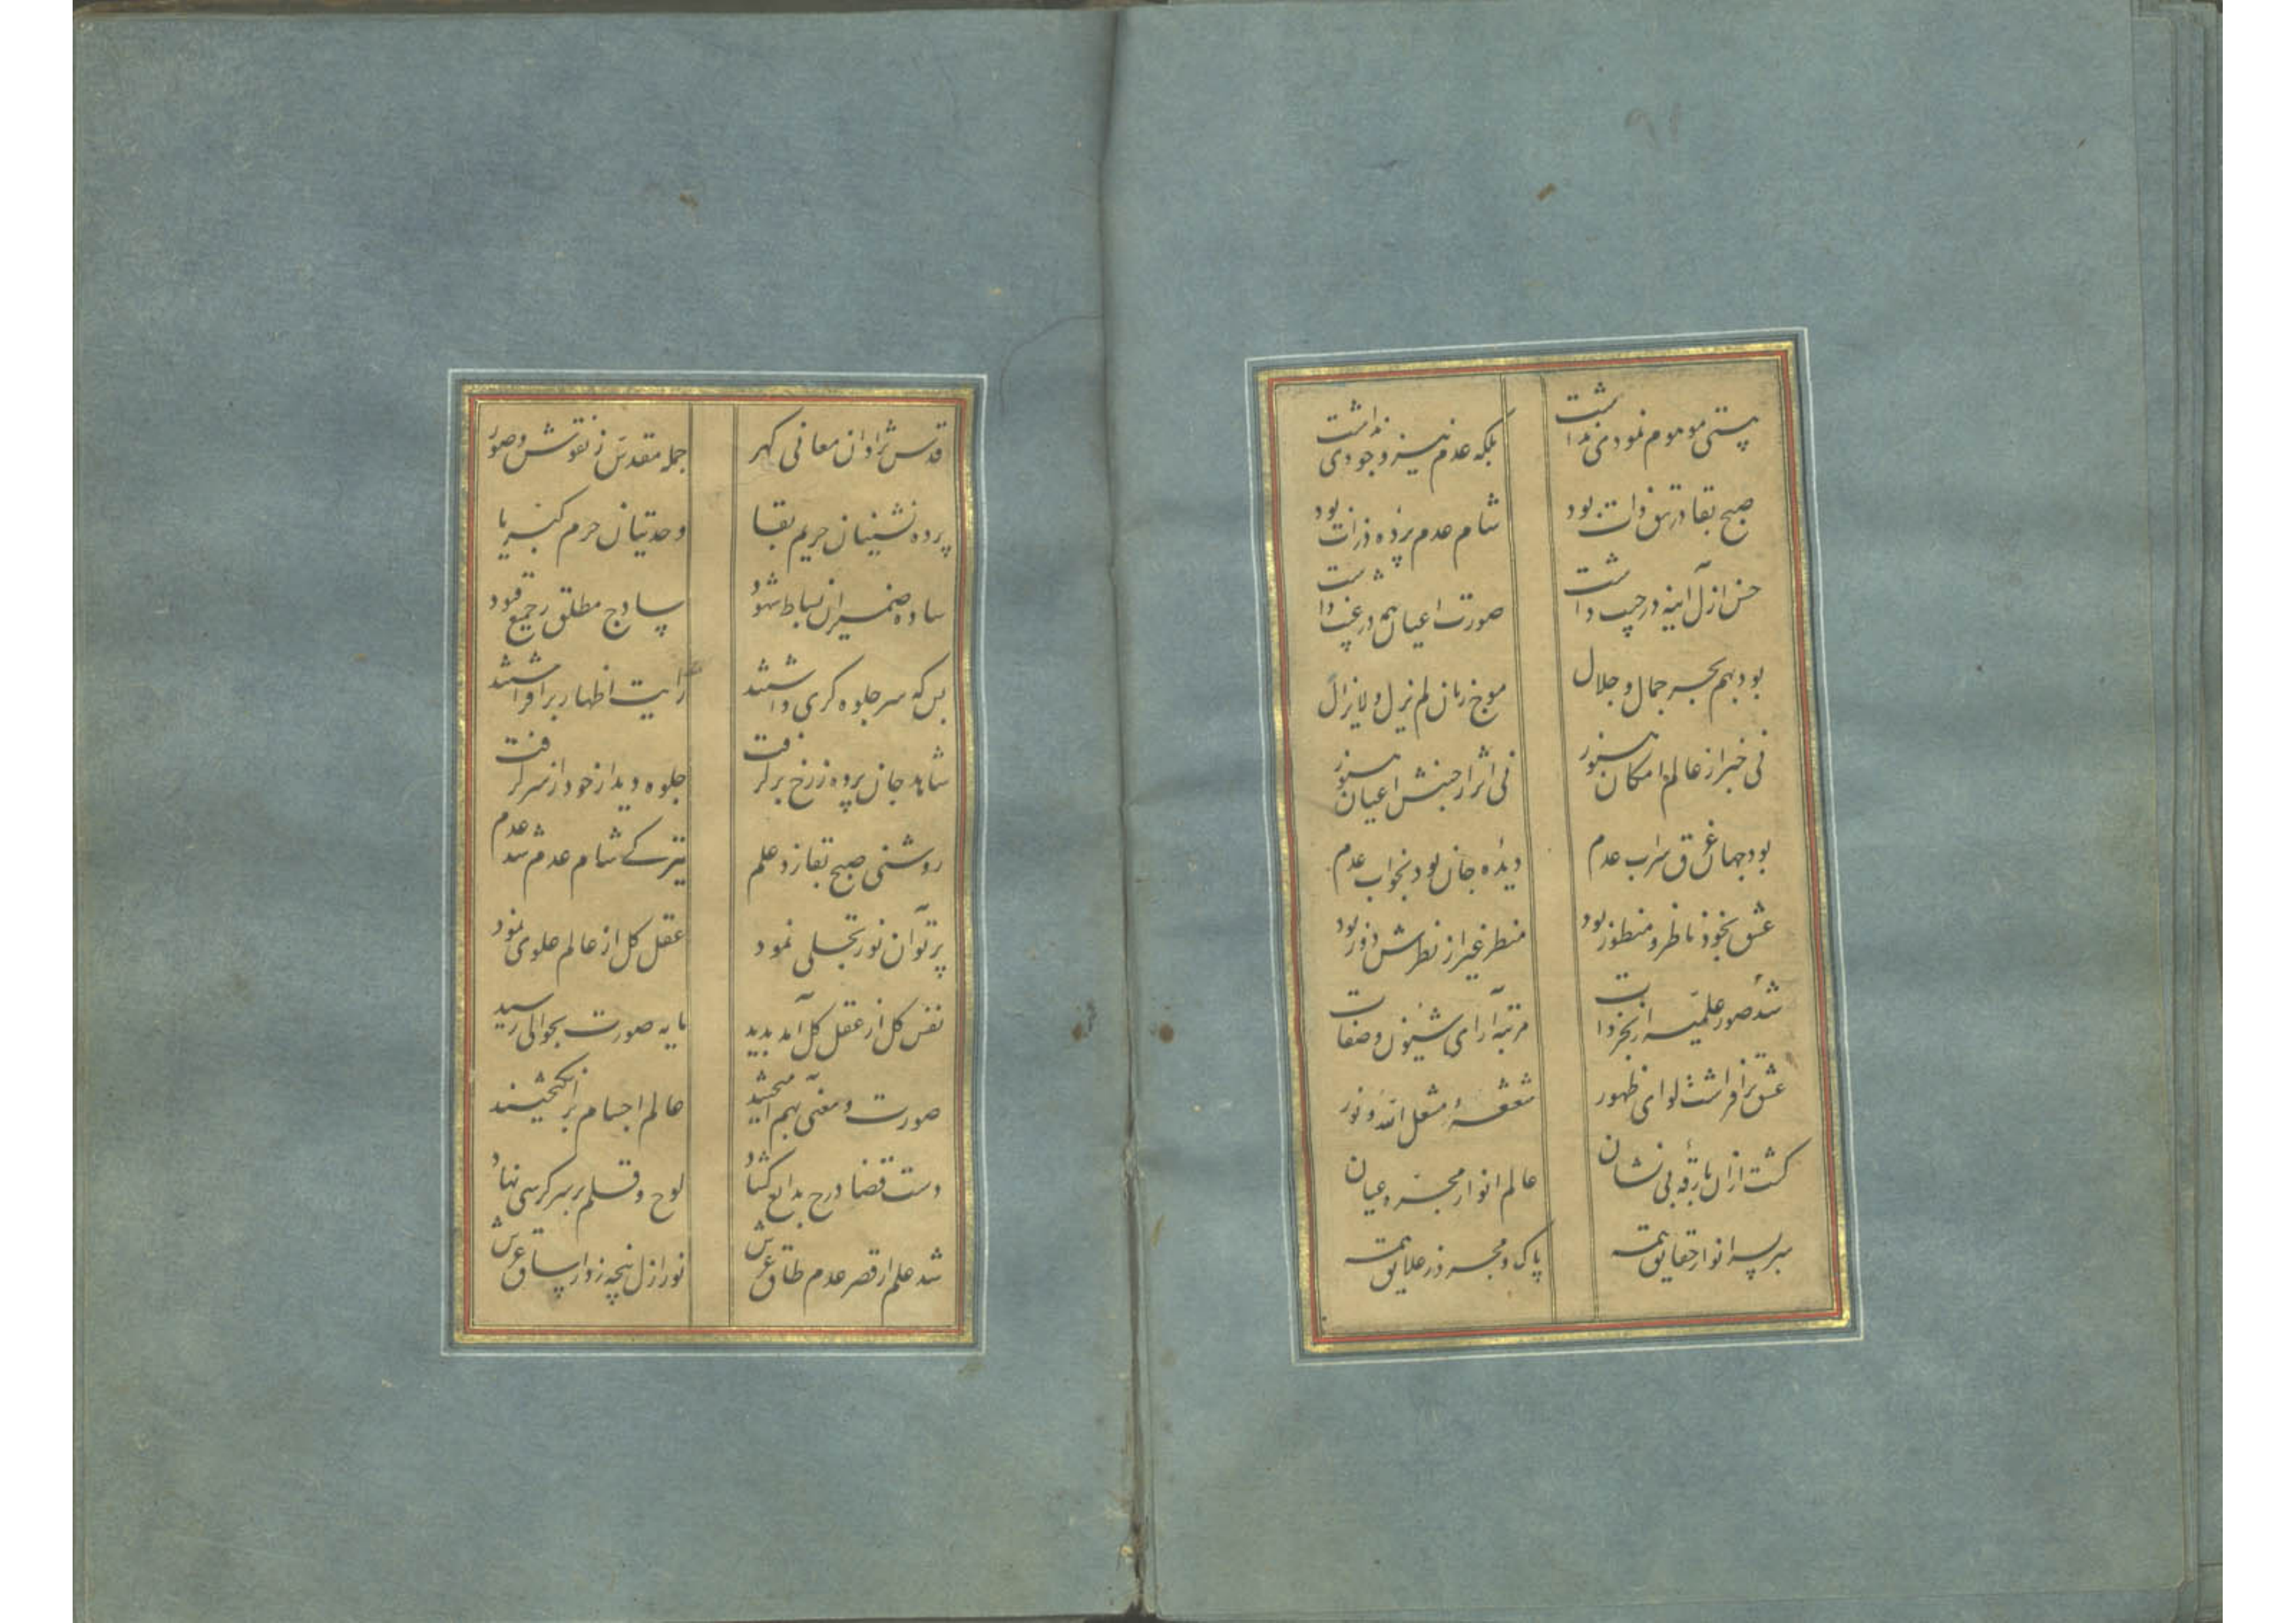 هستی موهوم نمودی نداشت
بلکه عدم نیز وجودی نداشت
صبح بقا در تتق ذات بود
شام عدم پرده ذرات بود
حسن ازل آینه در جیب داشت
صورت اعیان همه در غیب داشت
بود بهم بحر جمال و جلال
موج زنان لم یزل و لایزال
نی خبر از عالم امکان هنوز
نی اثر از جنبش اعیان هنوز
بود جهان غرق سراب عدم
دیده جان بود بخواب عدم
عشق بخود ناظر و منظور بود
منظر غیر از نظرش دور بود
شد صور علمیه از بحر ذات
مرتبه آرای شئون و صفات
عشق برافراشت لوای ظهور
شعشعه مشعل الله نور
گشت ازان بارقه بی نشان
عالم انوار مجرد عیان
سر بسر انوار حقایق همه
پاک و مجرد ز علایق همه
قدس نژادان معانی گهر
جمله مقدس ز نقوش و صور
پرده نشینان حریم بقا
وحدتیان حرم کبریا
ساده ضمیران بساط شهود
ساذج مطلق ز جمیع قیود
بس که سر جلوه گری داشتند
رایت اظهار برافراشتند
شاهد جان پرده ز رخ برگرفت
جلوه دیدار خود از سر گرفت
روشنی صبح بقا زد علم
تیرگی شام عدم شد عدم
پرتو آن نور تجلی نمود
عقل کل از عالم علوی نمود
نفس کل از عقل کل آمد پدید
پایه صورت بحوالی رسید
صورت و معنی بهم آمیختند
عالم اجسام برانگیختند
دست قضا درج بدایع گشاد
لوح و قلم بر سر کرسی نهاد
شد علم از قصر عدم طاق عرش
نور ازل پنجه زد از ساق عرش